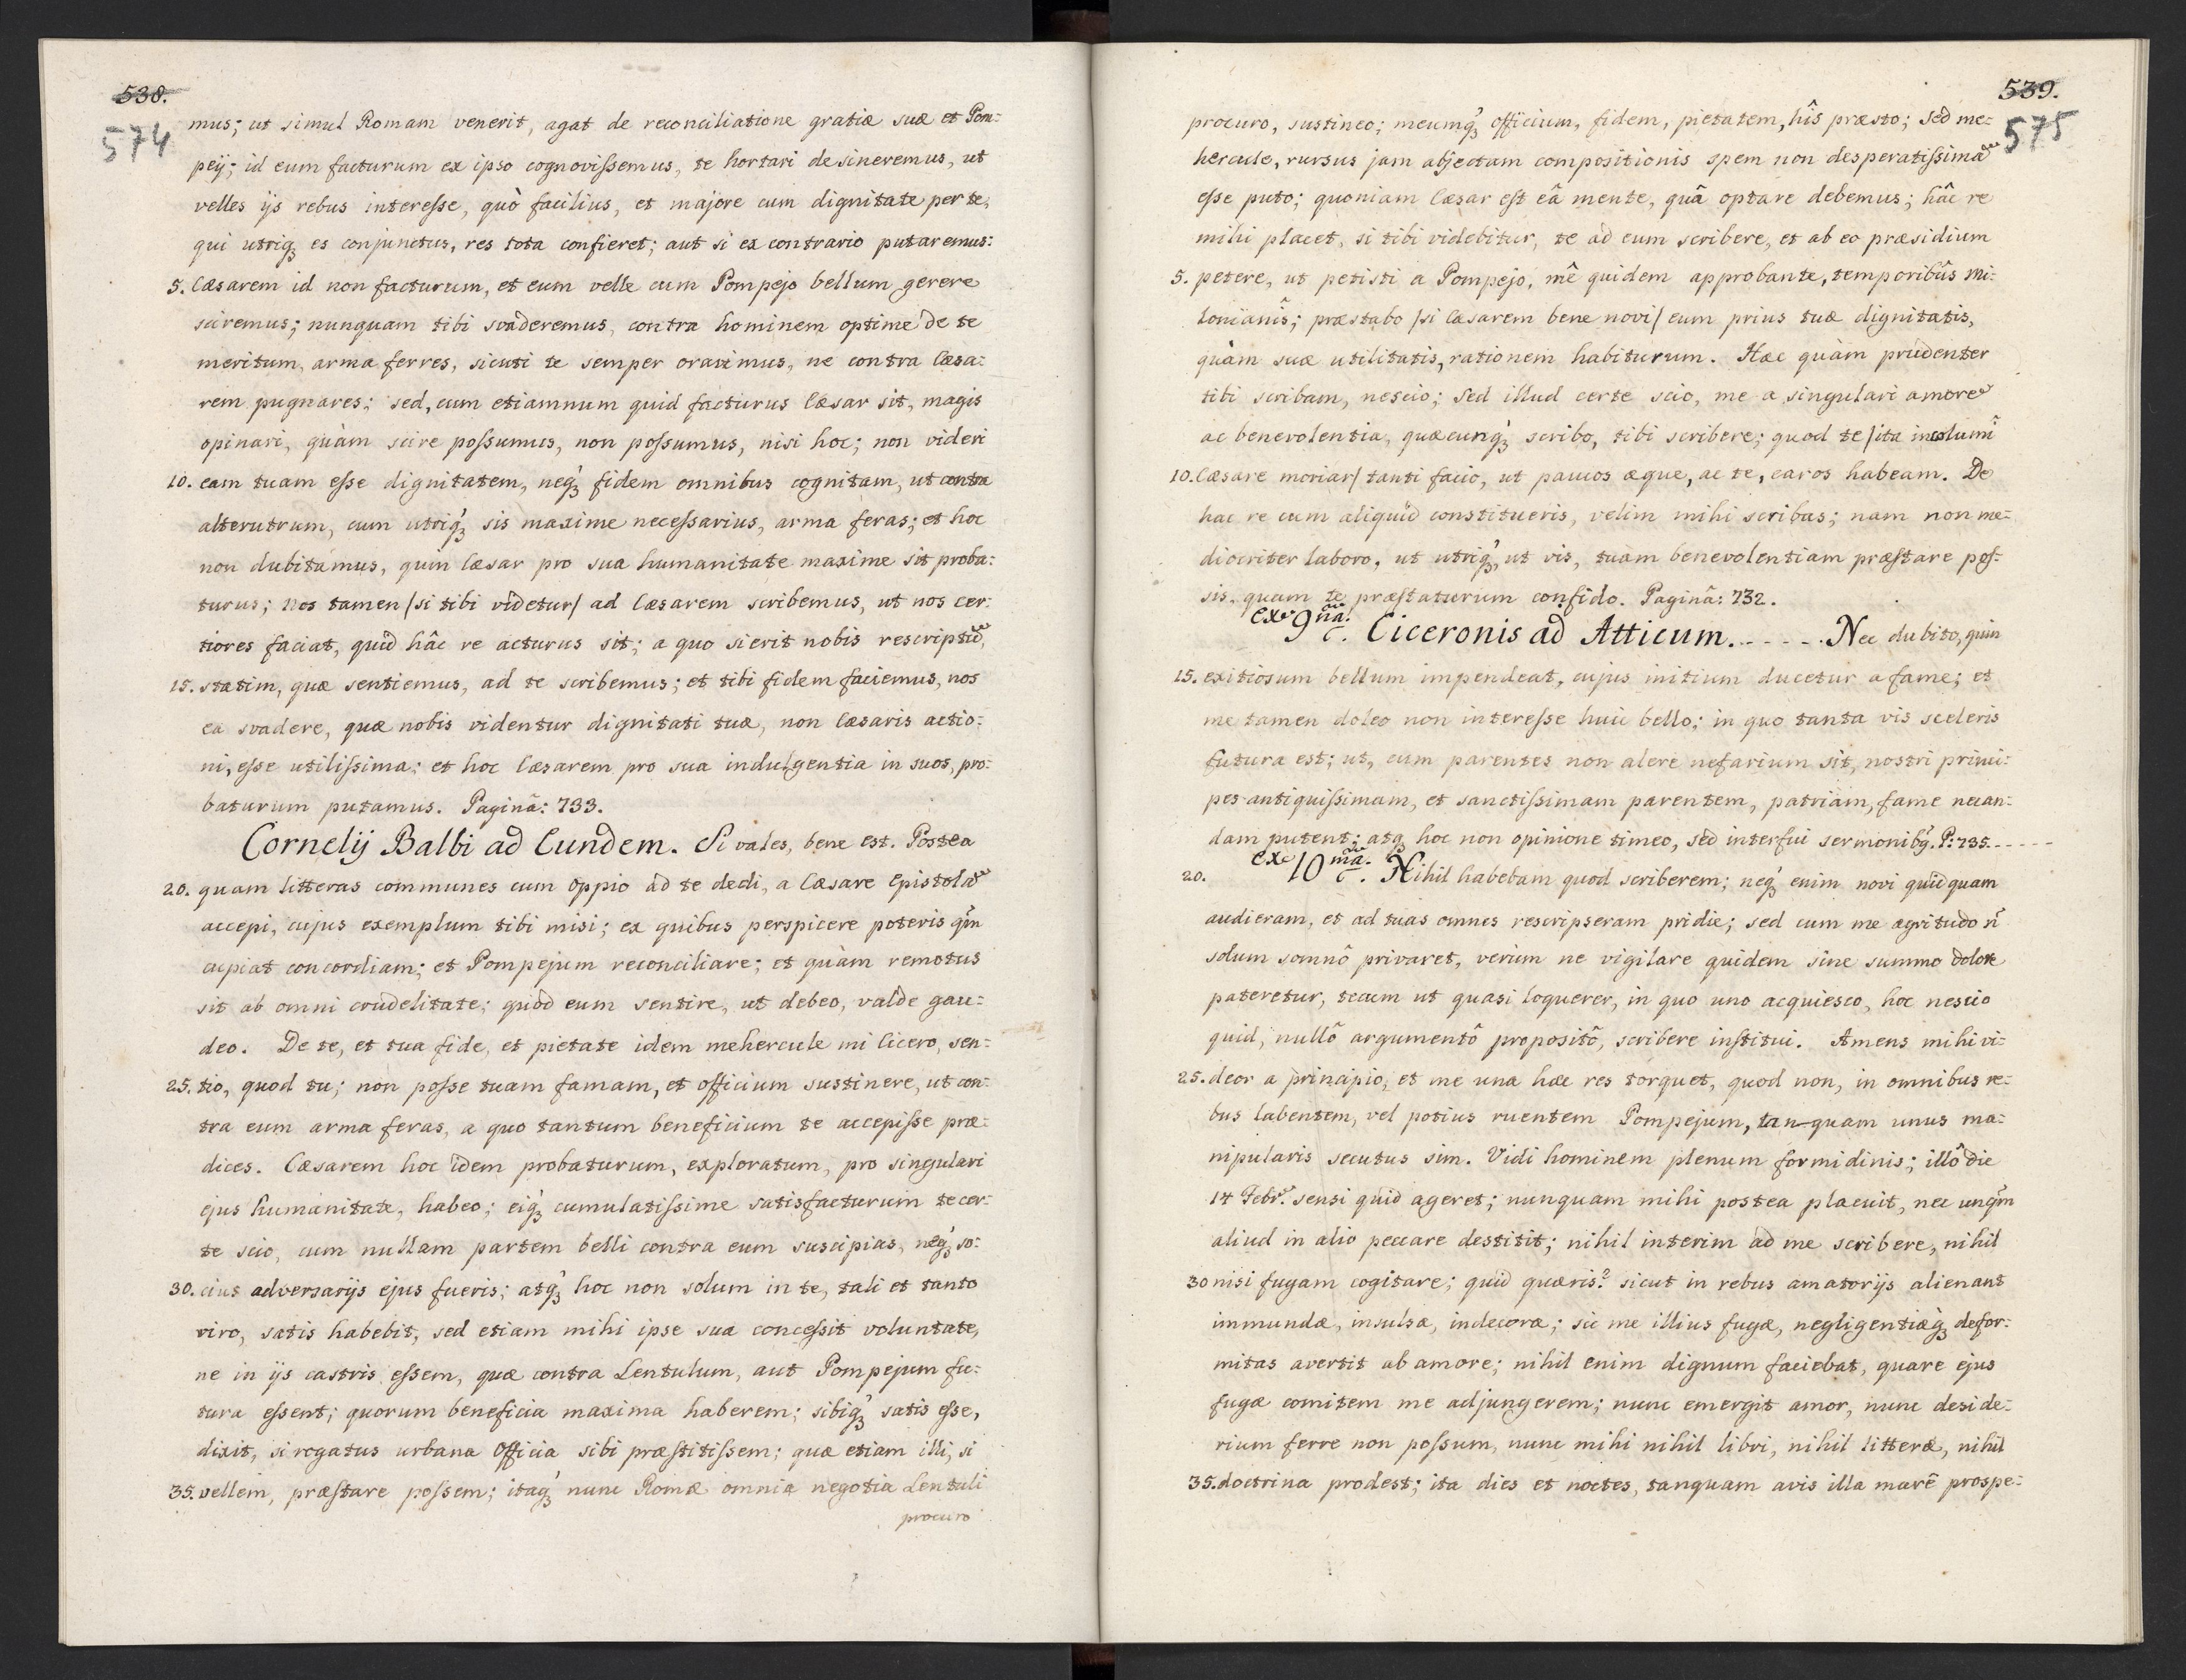 538.
574
mus; ut simul Romam venerit, agat de reconciliatione gratiæ suæ et Pom:
peÿ; id eum facturum ex ipso cognovissemus, te hortari desineremus, ut
velles ijs rebus interesse, quò facilius, et majore cum dignitate per te,
qui utriqȝ es conjunctus, res tota confieret; aut si ex contrario putaremus:
5. Cæsarem id non facturum, et eum velle cum Pompejo bellum gerere
sciremus; nunquam tibi svaderemus, contra hominem optime de te
meritum, arma ferres, sicuti te semper oravimus, ne contra Cæsa:
rem pugnares; sed, cum etiamnum quid facturus Cæsar sit, magis
opinari, quàm scire possumus, non possumus, nisi hoc; non videri
10. eam tuam esse dignitatem, neqȝ fidem omnibus cognitam, ut contra
alterutrum, cum utriqȝ sis maxime necessarius, arma feras; et hoc
non dubitamus, quin Cæsar pro sua humanitate maxime sit proba:
turus; Nos tamen /si tibi videtur/ ad Cæsarem scribemus, ut nos cer:
tiores faciat, quid hâc re acturus sit; a quo si erit nobis rescriptũ,
15. statim, quæ sentiemus, ad te scribemus; et tibi fidem faciemus, nos
ea svadere, quæ nobis videntur dignitati tuæ, non Cæsaris actio:
ni, esse utilissima; et hoc Cæsarem pro sua indulgentia in suos, pro:
baturum putamus. Paginâ: 733.
Cornelij Balbi ad Eundem. Si vales, bene est. Postea
20. quam litteras communes cum Oppio ad te dedi, a Cæsare Epistolã
accepi, cujus exemplum tibi misi; ex quibus perspicere poteris qm̃
cupiat concordiam; et Pompejum reconciliare; et quàm remotus
sit ab omni crudelitate; quòd eum sentire, ut debeo, valde gau:
deo. De te, et tua fide, et pietate idem mehercule mi Cicero, sen:
25. tio, quod tu; non posse tuam famam, et officium sustinere, ut con:
tra eum arma feras, a quo tantum beneficium te accepisse præ:
dices. Cæsarem hoc idem probaturum, exploratum, pro singulari
ejus humanitate, habeo; eiqȝ cumulatissime satisfacturum te cer:
te scio, cum nullam partem belli contra eum suscipias, neqȝ so:
30. cius adversarijs ejus fueris; atqȝ hoc non solum in te, tali et tanto
viro, satis habebit, sed etiam mihi ipse sua concessit voluntate,
ne in ijs castris essem, quæ contra Lentulum, aut Pompejum fu:
tura essent; quorum beneficia maxima haberem; sibiqȝ satis esse,
dixit, si rogatus urbana officia sibi præstitissem; quæ etiam illi, si
35. vellem, præstare possem; itaqȝ nunc Romæ omnia negotia Lentuli
procuro
539.
575
procuro, sustineo; meumqȝ officium, fidem, pietatem, hîs præsto; sed me:
hercule, rursus jam abjectam compositionis spem non desperatissimã
esse puto; quoniam Cæsar est eâ mente, quâ optare debemus; hâc re
mihi placet, si tibi videbitur, te ad eum scribere, et ab eo præsidium
5. petere, ut petisti a Pompejo, mê quidem approbante, temporibûs Mi:
lonianîs; præstabo /si Cæsarem bene novi/ eum prius tuæ dignitatis,
quàm suæ utilitatis, rationem habiturum. Hæc quàm prudenter
tibi scribam, nescio; sed illud certe scio, me a singulari amore
ac benevolentia, quæcunqȝ scribo, tibi scribere; quod te /ita incolumî
10. Cæsare moriar/ tanti facio, ut paucos æque, ac te, caros habeam. De
hac re cum aliquid constitueris, velim mihi scribas; nam non me:
diocriter laboro, ut utriqȝ, ut vis, tuam benevolentiam præstare pos:
sis, quam te præstaturum confido. Paginâ: 732.
Ex 9nâ. C. Ciceronis ad Atticum. - - - - - . Nec dubito, quin
15. exitiosum bellum impendeat, cujus initium ducetur a fame; et
me tamen doleo non interesse huic bello; in quo tanta vis sceleris
futura est; ut, cum parentes non alere nefarium sit, nostri princi:
pes antiquissimam, et sanctissimam parentem, patriam, fame necan:
dam putent; atqȝ hoc non opinione timeo, sed interfui sermonibq̃. P: 735. - - - - -
20. Ex 10mâ. C. Nihil habebam quod scriberem; neqȝ enim novi quidquam
audieram, et ad tuas omnes rescripseram pridie; sed cum me ægritudo ñ
solum somnô privaret, verùm ne vigilare quidem sine summo dolore
pateretur, tecum ut quasi loquerer, in quo uno acquiesco, hoc nescio
quid, nullô argumentô propositô, scribere institui. Amens mihi vi:
25. deor a principio, et me una hæc res torquet, quod non, in omnibus re:
bus labentem, vel potius ruentem Pompejum, tan-quam unus ma:
nipularis secutus sim. Vidi hominem plenum formidinis; illô die
14 Febr. sensi quid ageret; nunquam mihi postea placuit, nec unqm̃
aliud in alio peccare destitit; nihil interim ad me scribere, nihil
30 nisi fugam cogitare; quid quæris? sicut in rebus amatorijs alienant
immundæ, insulsæ, indecoræ; sic me illius fugæ, negligentiæqȝ defor:
mitas avertit ab amore; nihil enim dignum faciebat, quare ejus
fugæ comitem me adjungerem; nunc emergit amor, nunc deside:
rium ferre non possum, nunc mihi nihil libri, nihil litteræ, nihil
35. doctrina prodest; ita dies et noctes, tanquam avis illa marê prospe: